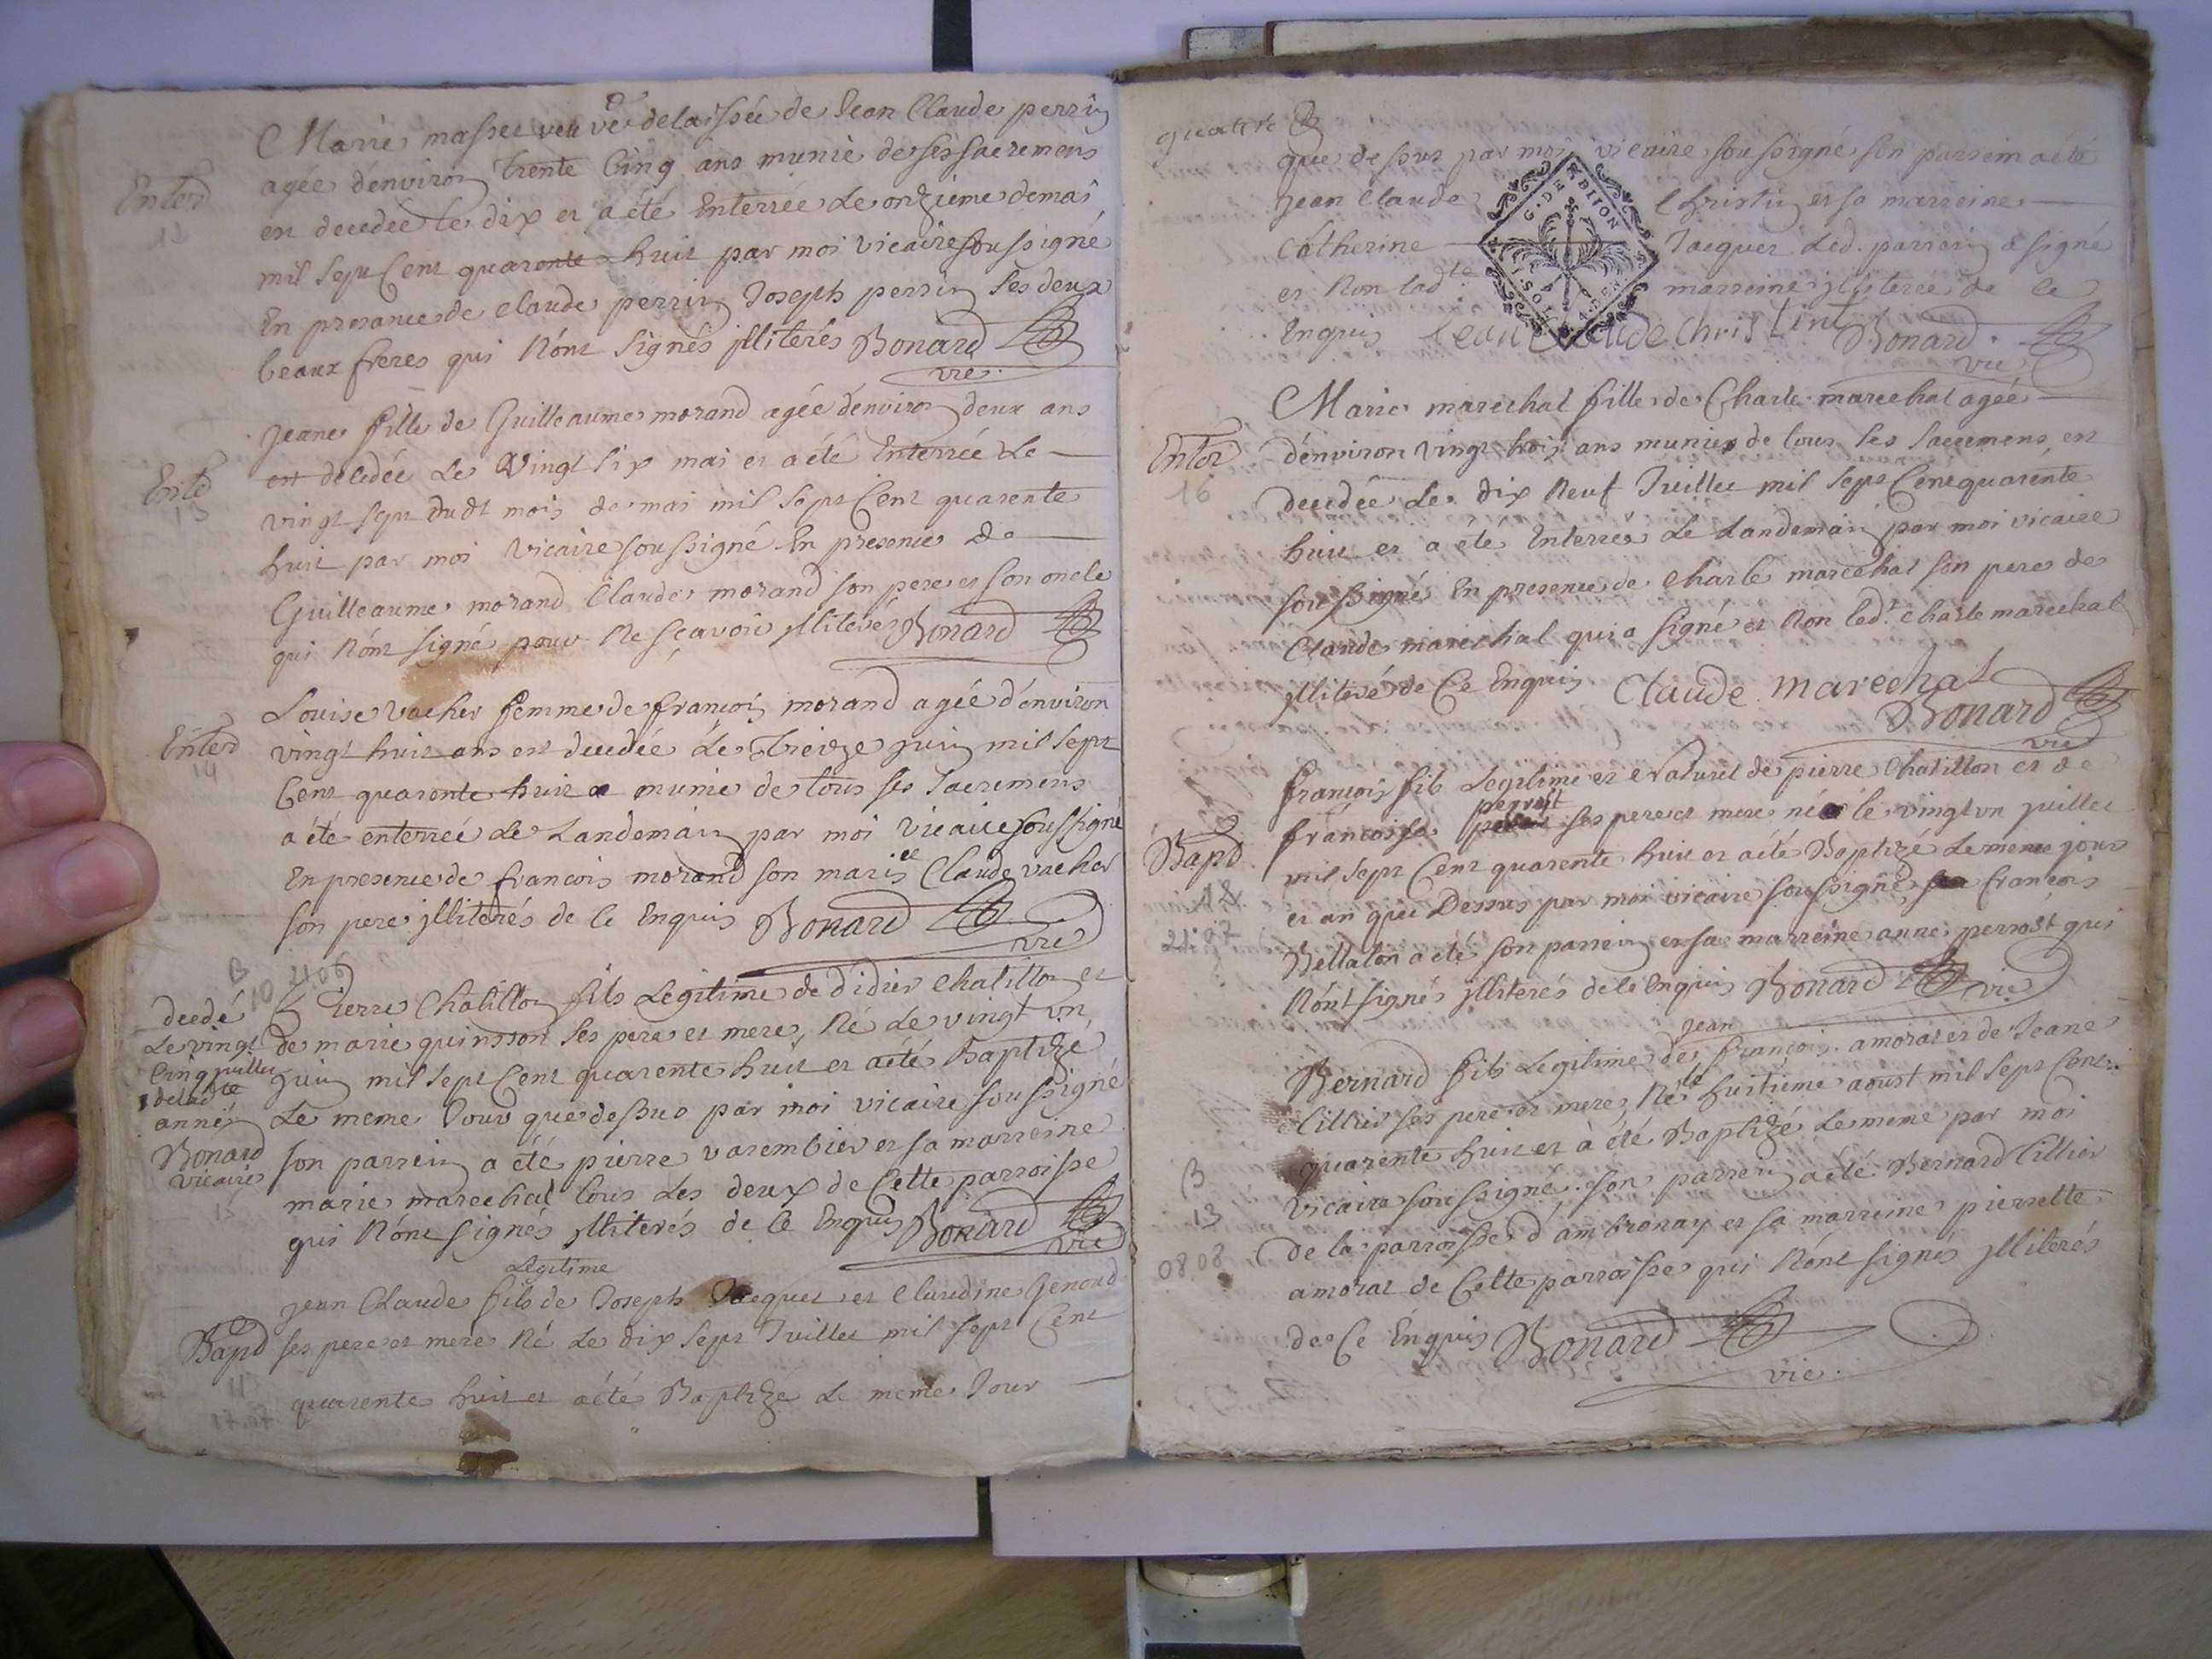 Marie masser veuve delaissée de Jean Claude perrin
agée d'environ trente Cinq ans munie de ses sacremens
Enterd
est decedée le dix et a été Enterrée Le onzieme de mai
12
mil sept Cent quarente huit par moi vicaire soussigné
En presance de claude perrin Joseph perrin ses deux
beaux freres qui N'ont signés illiterés Bonard
vic.
Jeane fille de Guilleaume morand agée d'environ deux ans
est decedée Le Vingt six mai et a été Enterrée Le
Enter
13
vingt sept dudt mois de mai mil sept Cent quarente
huit par moi Vicaire soussigné En presence de
Guilleaume morand Claude morand son pere et son oncle
qui N'ont signé pour Ne sçavoir illiterés Bonard
Louise vacher femme de francois morand agée d'environ
Enterd
vingt huit ans est decedée Le Treize juin mil sept
14
Cent quarente huit munie de tous ses sacremens
a été enterreé Le Landemain par moi vicaire soussigné
En presence de francois morand son mari et Claude vacher
son pere illiterés de ce Enquis Bonard
vic
B
10 2106
Pierre Chatillon fils Legitime de didier chatillon et
decedé
Le vingt
de marie quinsson ses pere et mere, Né Le vingt un
Cinq juillet
juin mil sept Cent quarente huit et a été Baptizé
de lad te
année
Le meme Jour que dessus par moi vicaire soussigné
Bonard
vicaire
son parrein a été pierre varembier et sa marreine
marie marechal tous Les deux de Cette parroisse
qui N'ont signés illiterés de ce Enquis Bonard
vic
Legitime
jean Claude fils de Joseph Jacquet et Claudine Genoud
Bapd
ses pere et mere Né Le dix sept Juillet mil sept Cent
11
quarente huit et a été Baptizé Le meme Jour
17.07
quatre
que dessus par moi vicaire soussigné son parrein a été
jean Claude Christin et sa marreine
G. DE BITON
Catherine Jacquet Led. parrein a signé
et Non ladte marreine illiterée de ce
Enquis Jean Claude Christint Bonard
vic
Marie marechal fille de Charle marechal agée
Enter
d'environ vingt trois ans munie de tous ses sacremens est
16
decedée Le Dix Neuf Juillet mil sept Cent quarente
huit et a été Enterrée Le Landemain par moi vicaire
soussigné En presence de Charle marechal son pere de
Claude marechal qui a signé et Non ledt. Charle marechal
illiteré de Ce Enquis Claude marechal
Bonard
vic
françois fils Legitime et Naturel de pierre Chatillon et de
perrost
francoise ses pere et mere né le vingt un juillet
Bapd
mil sept Cent quarente huit et a été Baptizé Le meme jour
12
et an que Dessus par moi vicaire soussigné francois
Bellaton a été son parrein et sa marreine anne perrost qui
N'ont signés illiterés de ce Enquis Bonard vic
jean
Bernard fils Legitime de françois amorat et de Jeane
Cillier ses pere et mere, Né le huitieme aoust mil sept Cent
quarente huit et à été Baptizé Le meme par moi
B
vicaire soussigné. son parrein a été Bernard Cillier
13
de la parroisse d'ambronay et sa marreine pierrette
08.08
amorat de Cette parroisse qui N'ont signés illiterés
de Ce Enquis Bonard
vic.